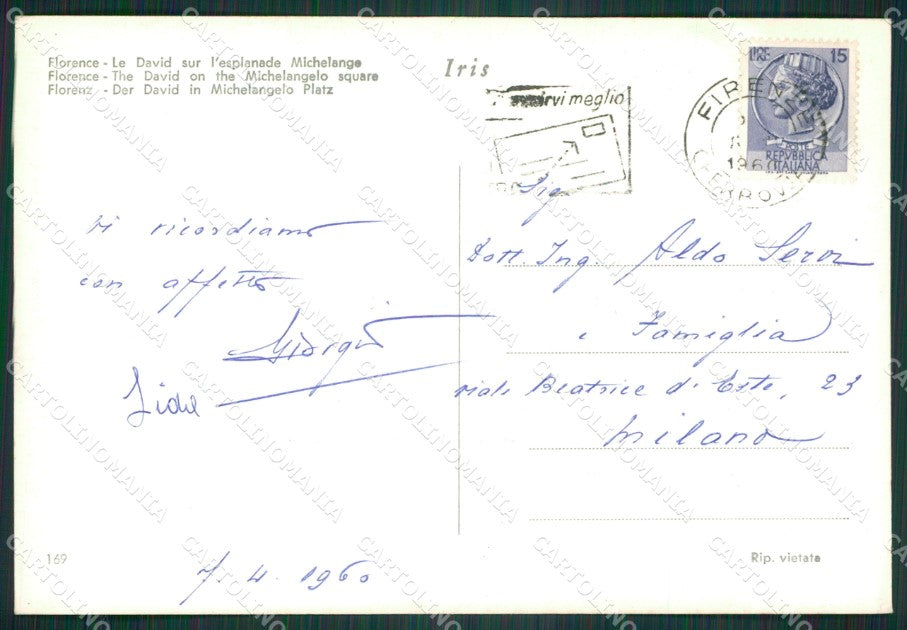 Florence - Le David sur l'esplanade Michelange
Florence - The David on the Michelangelo square
Florenz - Der David in Michelangelo Platz
Iris
servirvi meglio
LIRE 15
REPVBBLICA
ITALIANA
FIRENZE
1960
FERROVIA
Vi ricordiamo
con affetto
Giorgio
7.4.1960
Sig
Dott. Ing. Aldo Servi
e Famiglia
viale Beatrice d'Este, 23
Milano
169
Rip. vietata
CARTOLINOMANIA